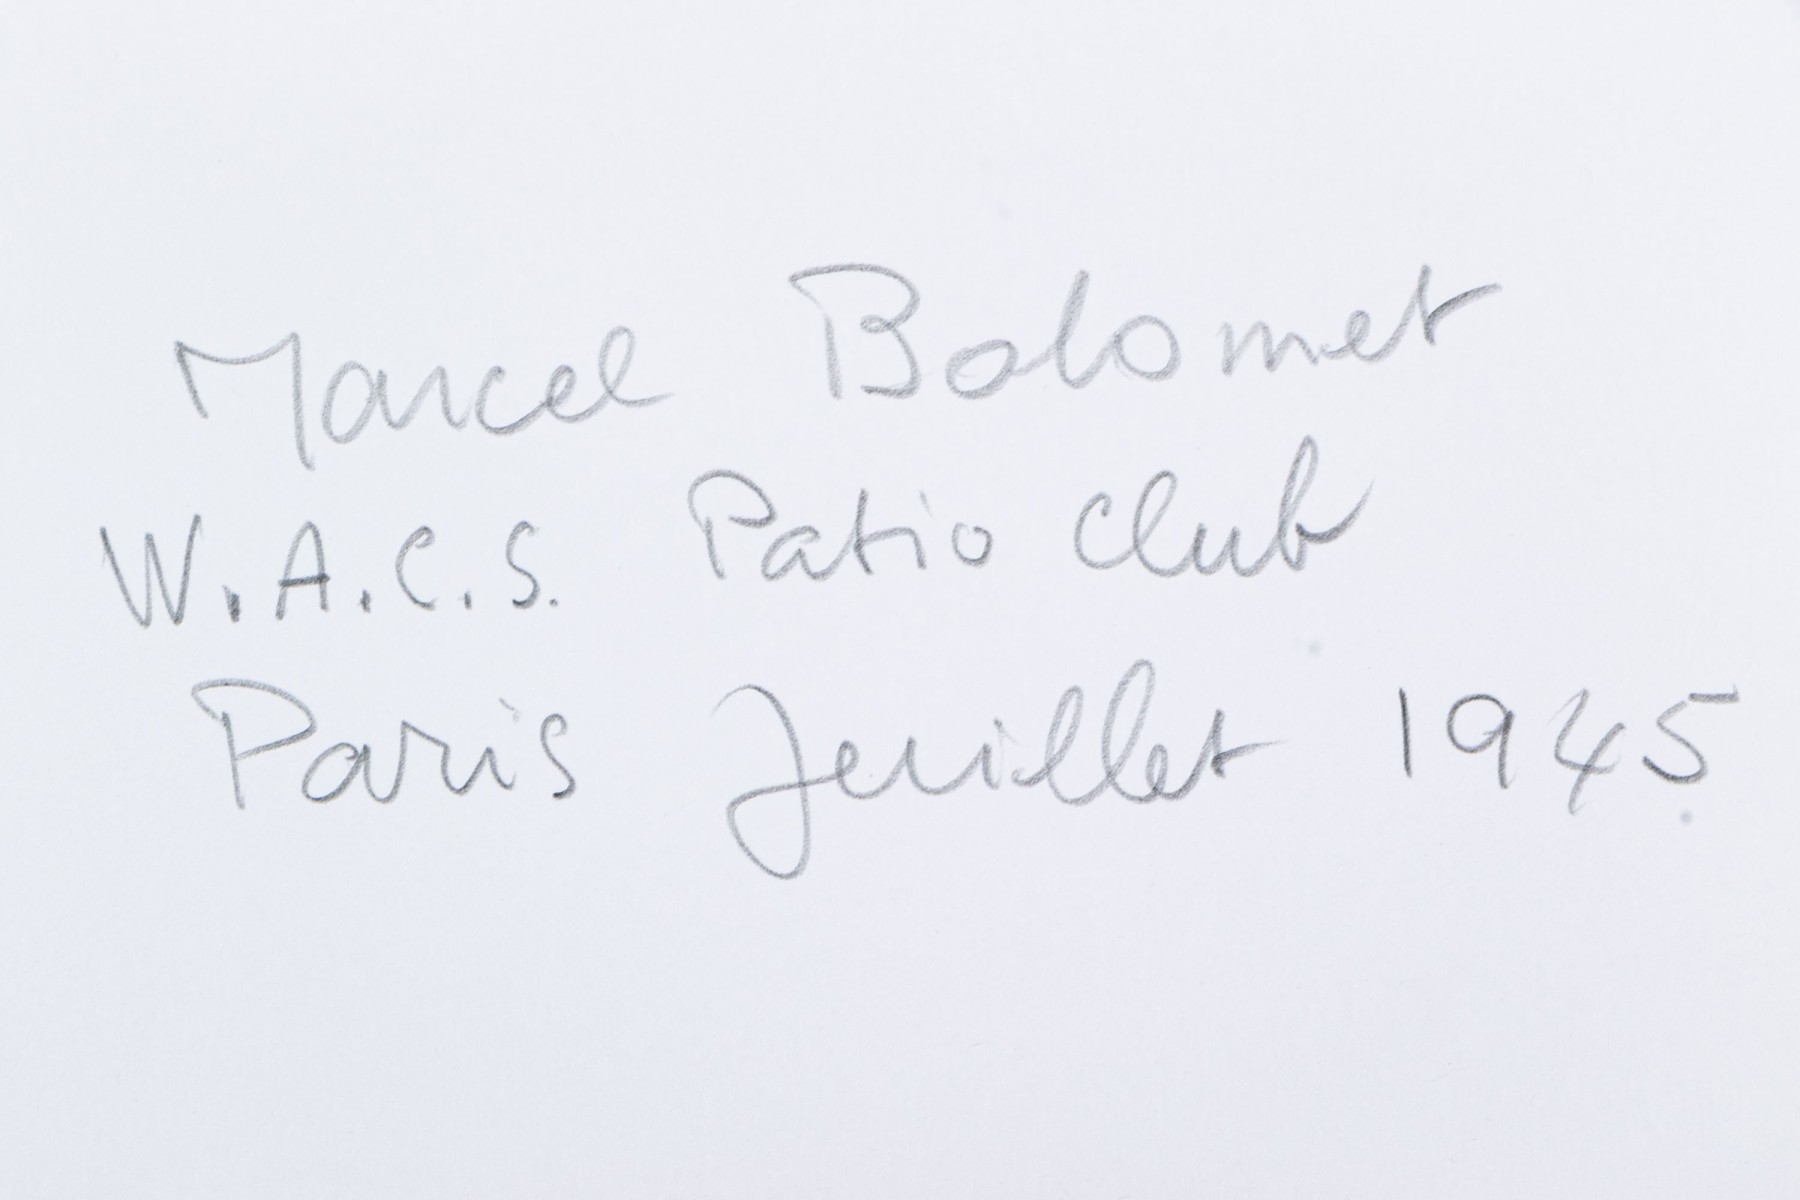 Marcel Bolomet
W.A.C.S. Patio Club
Paris Juillet 1945